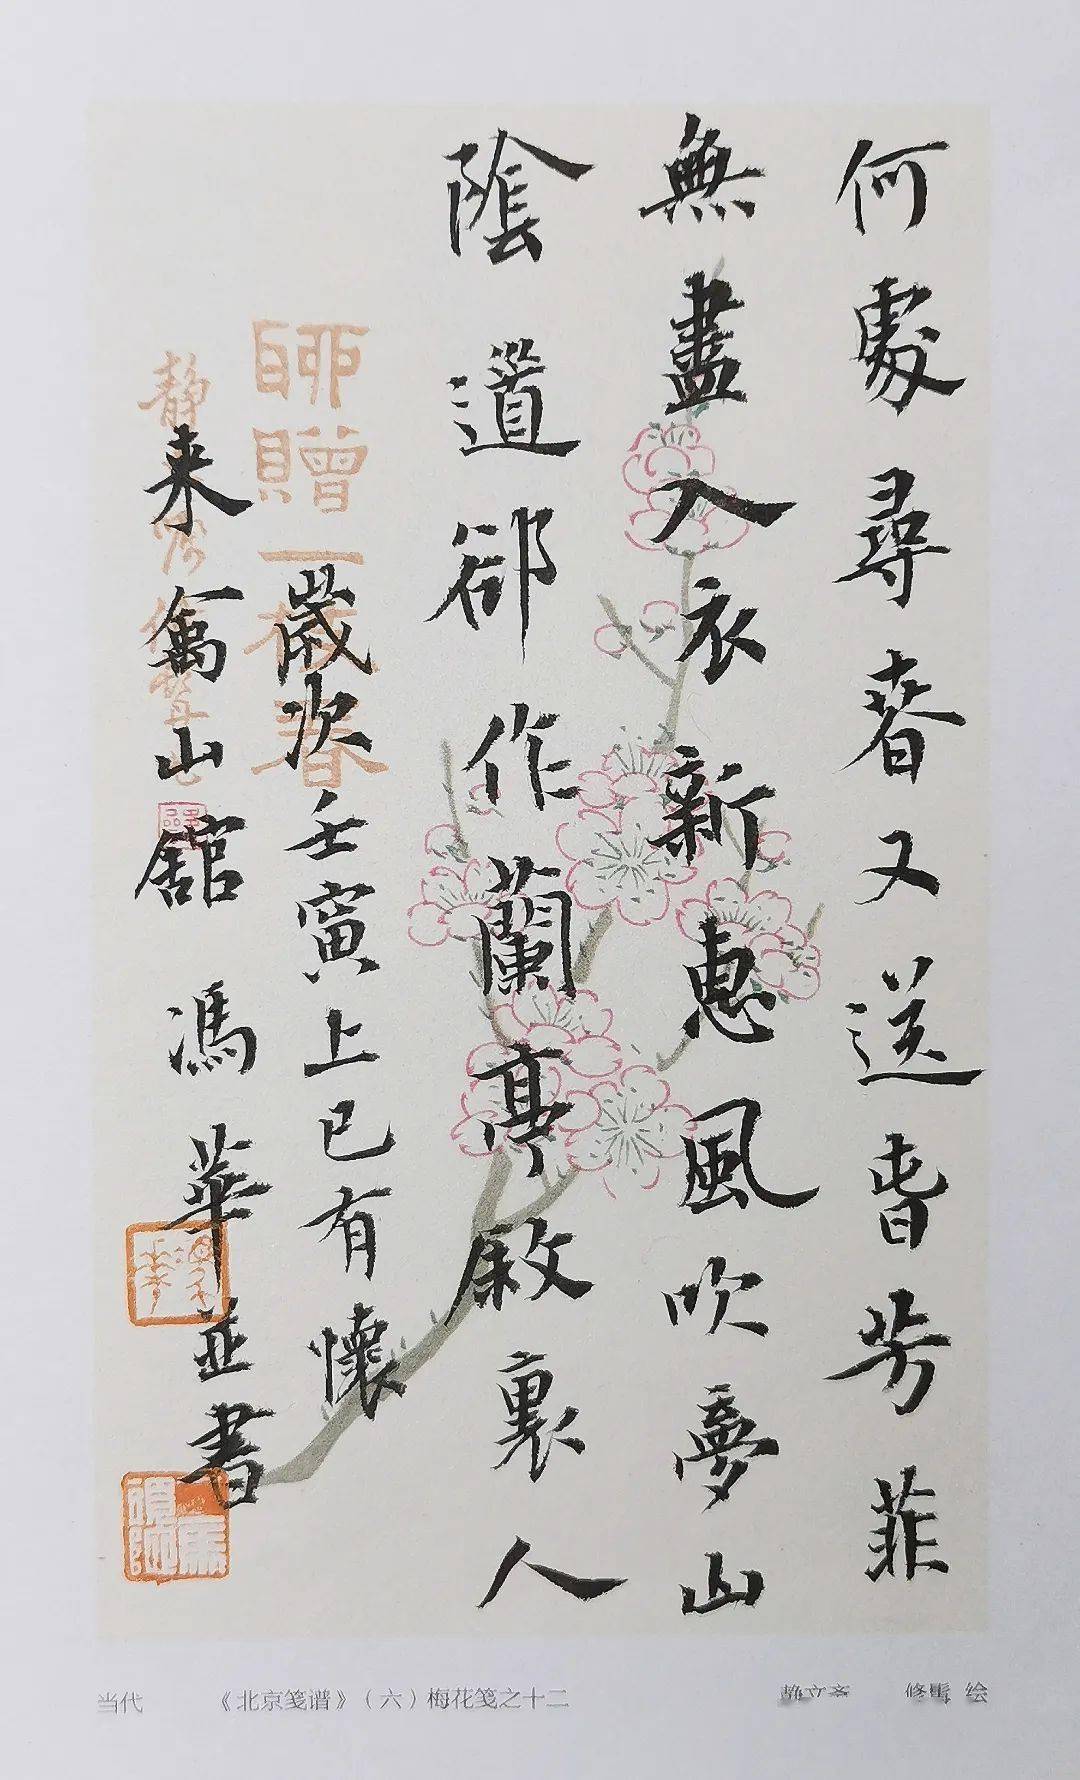 何處尋春又送旾芳菲
無盡入衣新惠風吹夢山
陰道卻作蘭亭敘裏人
歲次壬寅上巳有懷
来禽山舘馮華並書
聊贈一枝春
当代 《北京笺谱》（六）梅花笺之十二 静文斋 修髯 绘